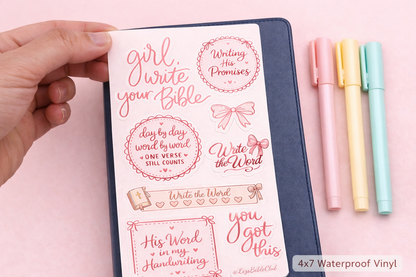 girl,
write
your Bible
Writing
His
Promises
day by day
word by word
ONE VERSE
STILL COUNTS
Write
the Word
Write the Word
His Word
in my
Handwriting
you
got
this
4x7 Waterproof Vinyl